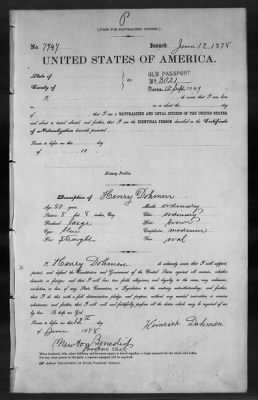 P
[FORM FOR NATURALIZED CITIZEN.]
No. 7947 Issued June 12, 1878
UNITED STATES OF AMERICA.
State of
County of
ss
OLD PASSPORT
No. 3021
I, do swear that I was born
on or about the day
of ; that I am a NATURALIZED AND LOYAL CITIZEN OF THE UNITED STATES,
and about to travel abroad; and further, that I am the IDENTICAL PERSON described in the Certificate
of Naturalization herewith presented.
Sworn to before me this day
of 18
Notary Public.
Description of Henry Dohmen
Age: 50 years Mouth: ordinary
Stature: 5 feet 8 inches, Eng. Chin: ordinary
Forehead: large Hair: brown
Eyes: blue Complexion: medium
Nose: straight Face: oval
I, Henry Dohmen do solemnly swear that I will support,
protect, and defend the Constitution and Government of the United States against all enemies, whether domestic
or foreign; and that I will bear true faith, allegiance, and loyalty to the same, any ordinance,
resolution, or law of any State, Convention, or Legislature to the contrary notwithstanding; and further,
that I do this with a full determination, pledge, and purpose, without any mental reservation or evasion
whatsoever; and further, that I will well and faithfully perform all the duties which may be required of me
by law: So help me God.
Sworn to before me this 12th day
of June 1878
Heinrich Dohmen
Newton Benedict
Passport Clerk